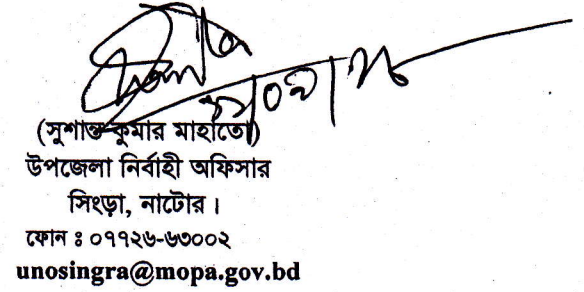 (সুশান্ত কুমার মাহাতো)
উপজেলা নির্বাহী অফিসার
সিংড়া, নাটোর ।
ফোন ঃ ০৭৭২৬-৬৩০০২
unosingra@mopa.gov.bd